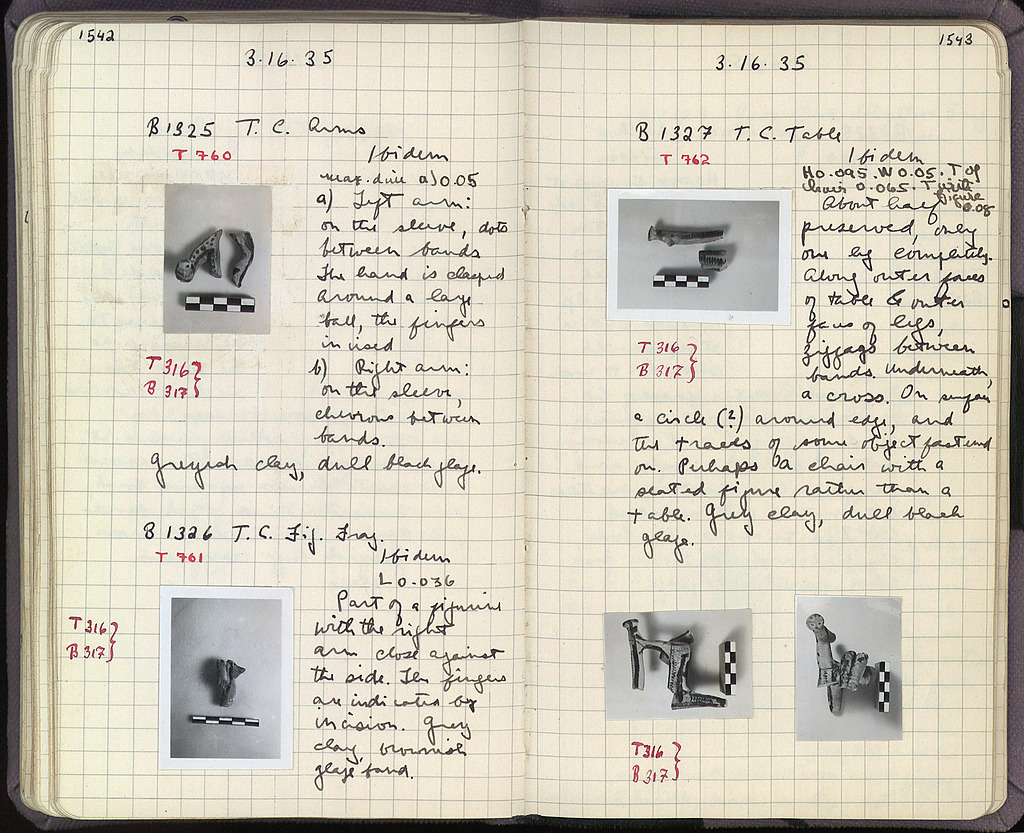 1542
3.16.35
B 1325 T. C. Arms
T 760
Ibidem
max. dim a) 0.05
a) Left arm:
on the sleeve, dots
between bands
The hand is clasped
around a large
ball, the fingers
incised
T 316 }
B 317 }
b) Right arm:
on the sleeve,
chevrons between
bands.
Greyish clay, dull black glaze.
B 1326 T. C. Fig. Frag.
T 761
Ibidem
L 0.036
Part of a figurine
with the right
arm close against
the side. The fingers
are indicated by
incision. Grey
clay, brownish
glaze band.
T 316 }
B 317 }
1543
3.16.35
B 1327 T. C. Table
T 762
Ibidem
H 0.095. W 0.05. T of
chair 0.065. T with
figure
0.08
About half
preserved, only
one leg completely.
Along outer faces
of table & outer
faces of legs,
zigzags between
bands. Underneath,
a cross. On surface
a circle (?) around edge, and
the traces of some object fastened
on. Perhaps a chair with a
seated figure rather than a
table. Grey clay, dull black
glaze.
T 316 }
B 317 }
T 316 }
B 317 }